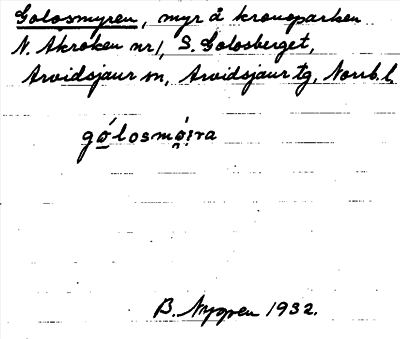 Golosmyren, myr å kronoparken
N. Akroken nr 1, S. Golosberget,
Arvidsjaur sn, Arvidsjaur tg, Norrb. l.
gó̲losmó̤i̤ra
B. Nygren 1932.